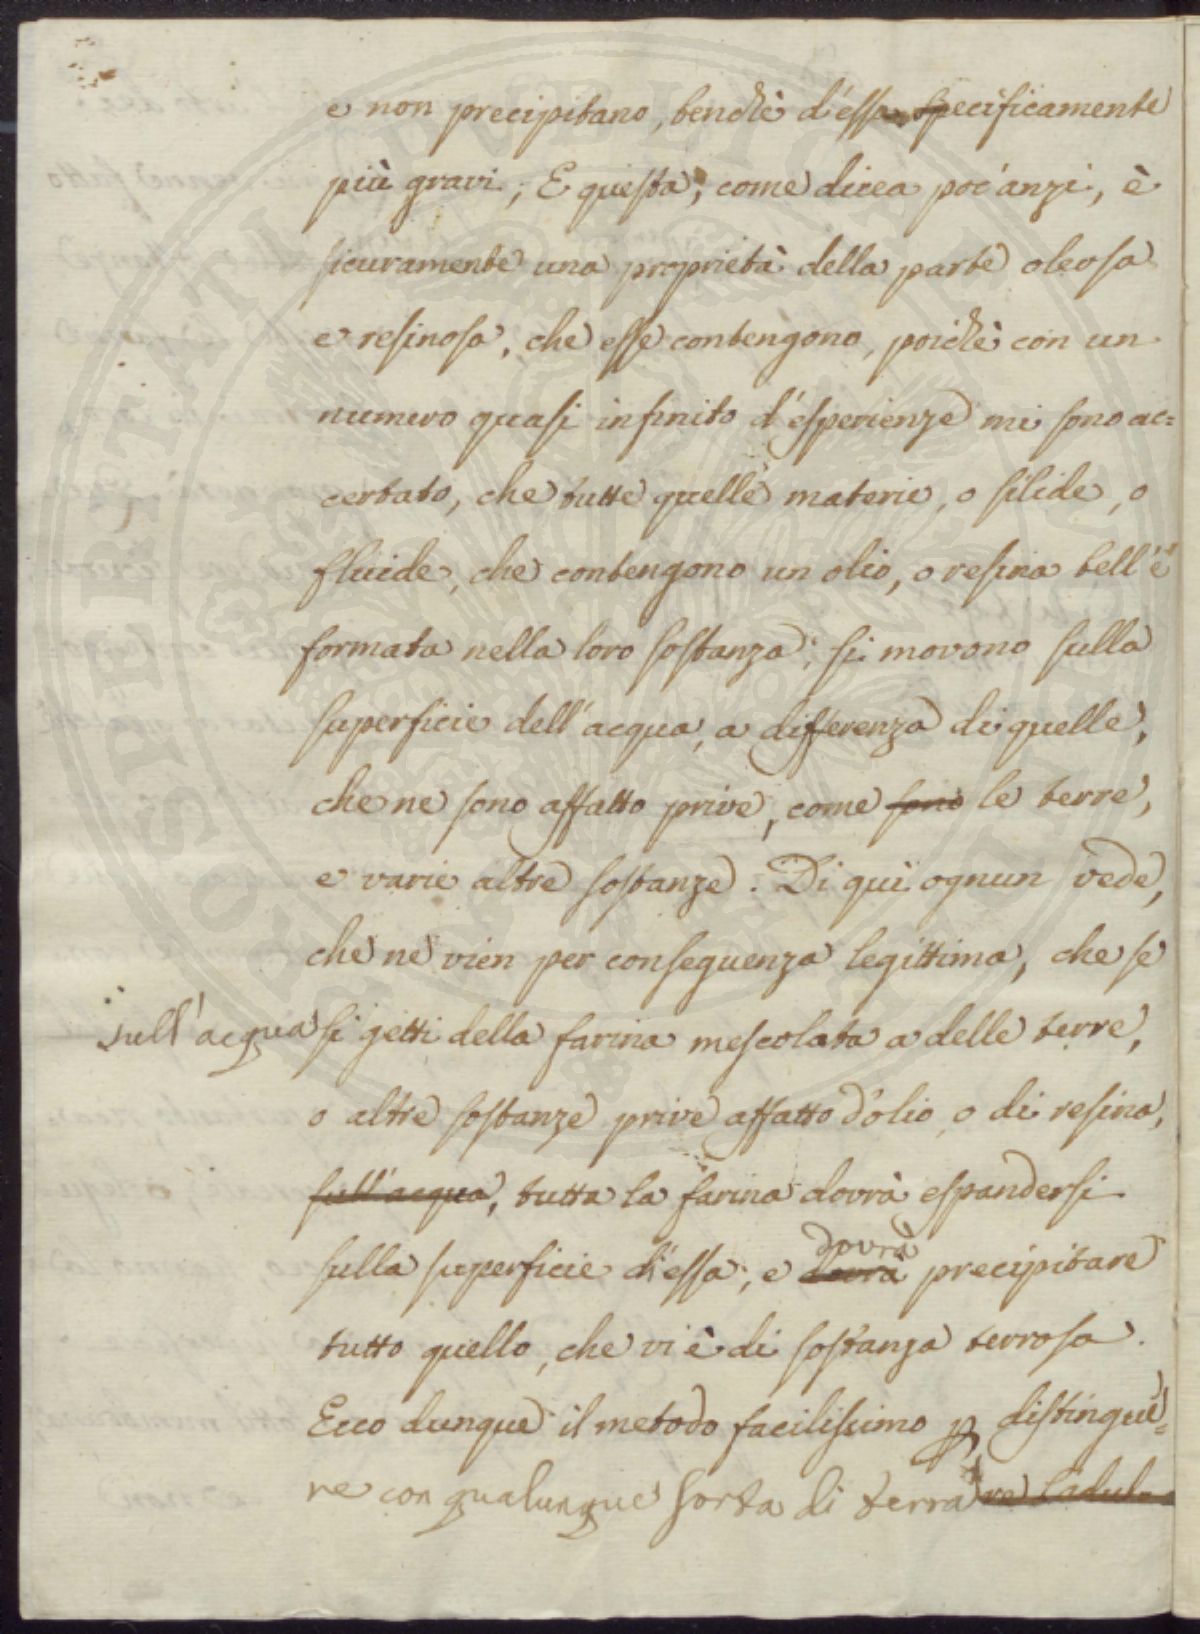 e non precipitano, benchè d'essa specificamente
più gravi; E questa, come dicea poc'anzi, è
sicuramente una proprietà della parte oleosa
e resinosa, che esse contengono, poichè con un
numero quasi infinito d'esperienze mi sono ac=
certato, che tutte quelle materie, o silide, o
fluide, che contengono un olio, o resina bell'è
formata nella loro sostanza, si movono sulla
superficie dell'acqua, a differenza di quelle,
che ne sono affatto prive, come sono le terre,
e varie altre sostanze. Di qui ognun vede,
che ne vien per conseguenza legittima, che se
sull'acqua si getti della farina mescolata a delle terre,
o altre sostanze prive affatto d'olio, o di resina,
sull'acqua, tutta la farina dovrà espandersi
dovrà
sulla superficie d'essa, e dovrà precipitare
tutto quello, che vi è di sostanza terrosa.
Ecco dunque il metodo facilissimo p distingue=
re con qualunque sorta di terra re l'adul=
UTILITATI PUBLICAE